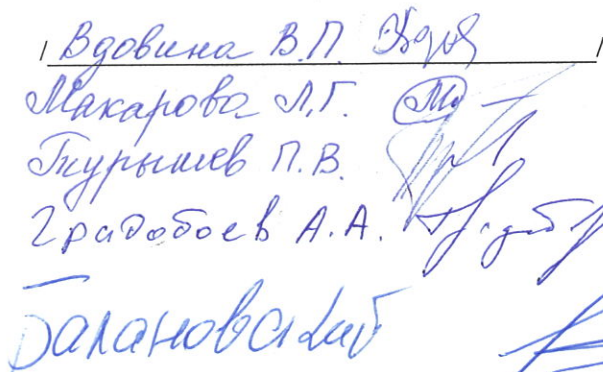 / Вдовина В.П. /
Макарова Л.Г.
П.В.
Градобоев А.А.
Балановский